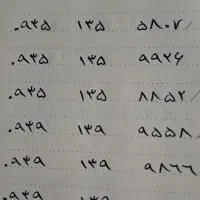 ۰۹۳۵ ۱۳۵ ۵۸۰۷ /
۰۹۳۵ ۱۳۵ ۹۹۲۶
۰۹۳۵ ۱۳۵ ۸۸۵۲ /
۰۹۳۹ ۱۳۹ ۹۵۵۸ /
۰۹۳۹ ۱۳۹ ۹۸۶۶
۰۹۳۹ ۱۳۹